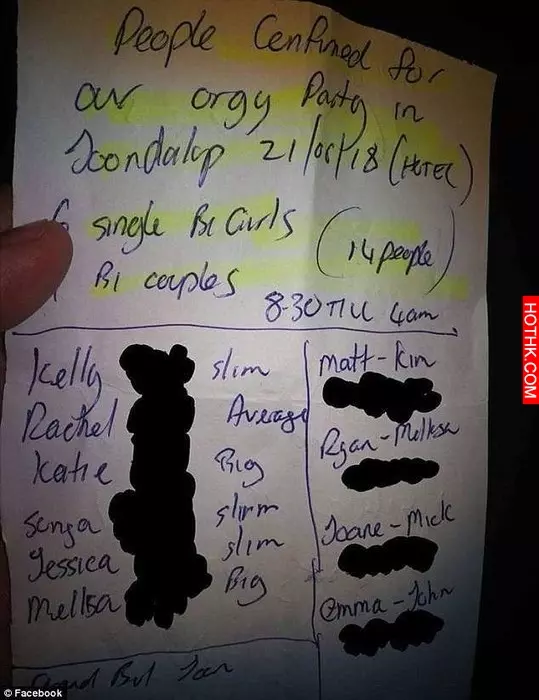 People Confirmed for
our orgy Party in
Joondalup (HOTEL)
6 single Bi Girls (14 people)
Bi couples
8-30 Till 4am
Kelly slim
Rachel Average
Katie Big
Sonya slim
Jessica slim
Mellsa Big
Matt - Kim
Ryan - Mellsa
Joane - Mick
Emma - John
HOTHK.COM
© Facebook